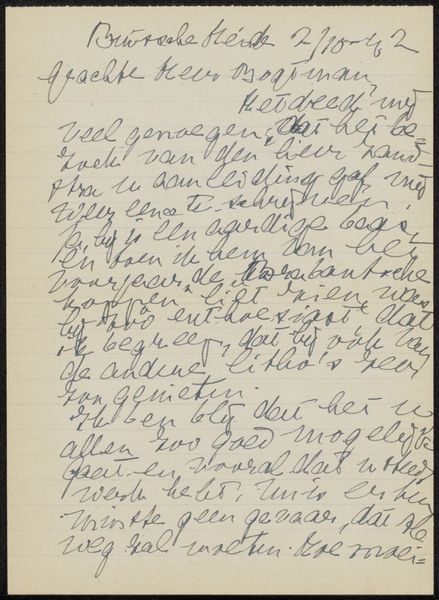 Bussche Heide 2/10-42
geachte Heer Bogtman,
Het deed mij
veel genoegen, dat het be=
zoek van den heer Zand=
stra u aanleiding gaf mij
weer eens te schrijven.
Ja, hij is een aardige baas
en toen ik hem van het
voorjaar de Brabantsche
koppen liet zien, was
hij zoo enthousiast, dat
ik begreep, dat hij ook van
de andere litho's zeer
zou genieten.
Ik ben blij dat het u
allen zoo goed mogelijk
gaat en vooral dat u
werk hebt, nu is er ten
minste geen gevaar, dat
weg zal moeten. Hoe